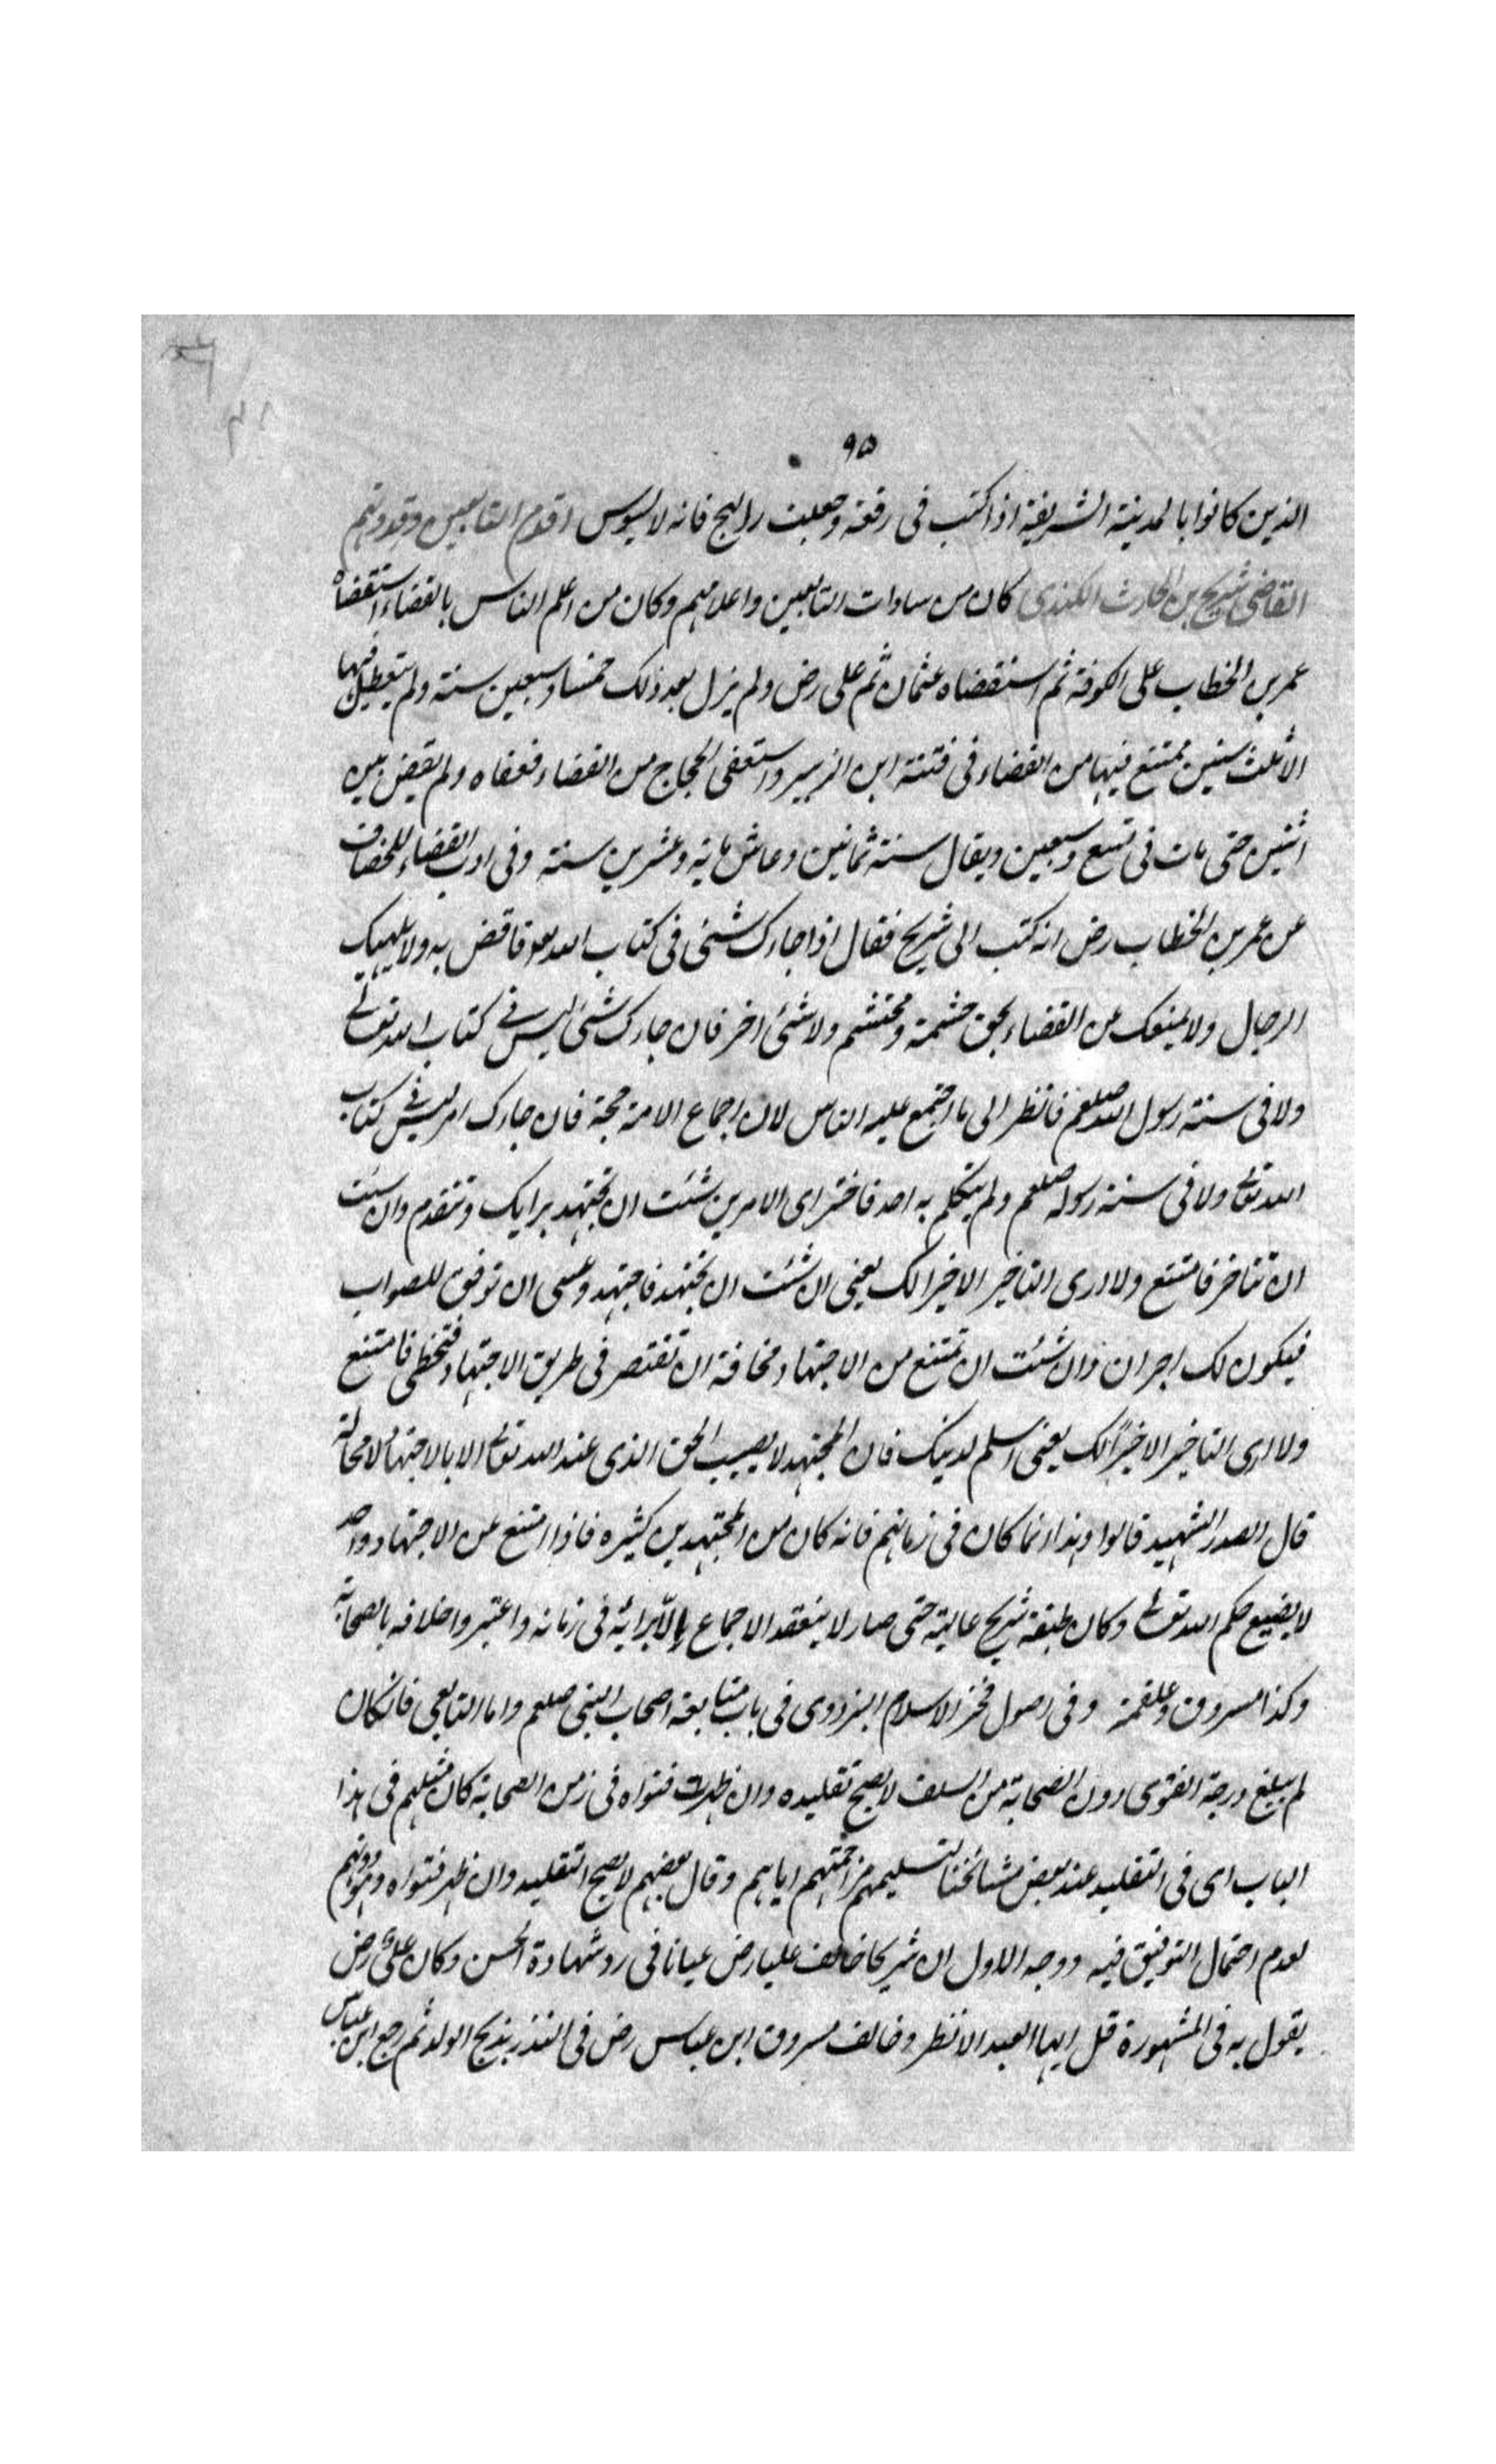 ٩٥
الذين كانوا بالمدينة الشريفة اذا كتب فى رقعة وجعلت فى البر فانه لا يسوس اقدم التابعين وقدوتهم
القاضى شريح بن الحارث الكندى كان من سادات التابعين واعلامهم وكان من اعلم الناس بالقضاء استقضاه
عمر بن الخطاب على الكوفة ثم استقضاه عثمان ثم على رض ولم يزل بعد ذلك خمسا وسبعين سنة ولم يتعطل فيها
الا ثلث سنين ممتنع فيها من القضاء فى فتنة ابن الزبير واستعفى الحجاج من القضاء فعفاه ولم يقض بين
اثنين حتى مات فى تسع وسبعين ويقال سنة ثمانين وعاش ماية وعشرين سنة وفى ادب القضاء للخصاف
عن عمر بن الخطاب رض انه كتب الى شريح فقال اذا جاءك شئى فى كتاب الله تعه فاقض به ولا يلهينك
الرجال ولا يمنعك عن القضاء بحق حشمة محتشم ولا شئ اخر فان جاءك شئ ليس فى كتاب الله تعالى
ولا فى سنة رسول الله صلعم فانظر الى ما اجتمع عليه الناس لان اجماع الامة حجة فان جاءك امر ليس فى كتاب
الله تعالى ولا فى سنة رسوله صلعم ولم يتكلم به احد فاختر اى الامرين شئت ان تجتهد برايك وتتقدم وان شئت
ان تتاخر فامتنع ولا ارى التاخير الا خيرا لك يعنى ان شئت ان تجتهد فاجتهد وعسى ان توفق للصواب
فيكون لك اجران وان شئت ان تمتنع من الاجتهاد مخافة ان تقتصر فى طريق الاجتهاد فتخطى فامتنع
ولا ارى التاخير الا خيرًا لك يعنى اسلم لدينك فان المجتهد لا يصيب الحق الذى عند الله تعالى الا بالاجتهاد لا محالة
قال الصدر الشهيد قالوا وهذا انما كان فى زمانهم فانه كان من المجتهدين كثيره فاذا امتنع عن الاجتهاد واحد
لا يضيع حكم الله تعالى وكان طبقة شريح عالية حتى صار لا ينعقد الاجماع الّا برايه فى زمانه واعتبروا خلافه بالصحابة
وكذا مسروق وعلقمة وفى اصول فخر الاسلام البزدوى فى باب متابعة اصحاب النبى صلعم واما التابعى فانكان
لم يبلغ درجة الفتوى دون الصحابة من السلف لا يصح تقليده وان ظهرت فتواه فى زمن الصحابة كان مثلهم فى هذا
الباب اى فى التقليد عند بعض مشائخنا لتسليمهم مزاحمتهم اياهم وقال بعضهم لا يصح التقليد وان ظهر فتواه وهو دونهم
لعدم احتمال التوفيق فيه ووجه الاول ان شريحا خالف عليا رض عيانا فى رد شهادة الحسن وكان علىٌ رض
يقول به فى المشهورة قل ايها العبد الانظر وخالف مسروق ابن عباس رض فى النذر بذبح الولد ثم رجع ابن عباس